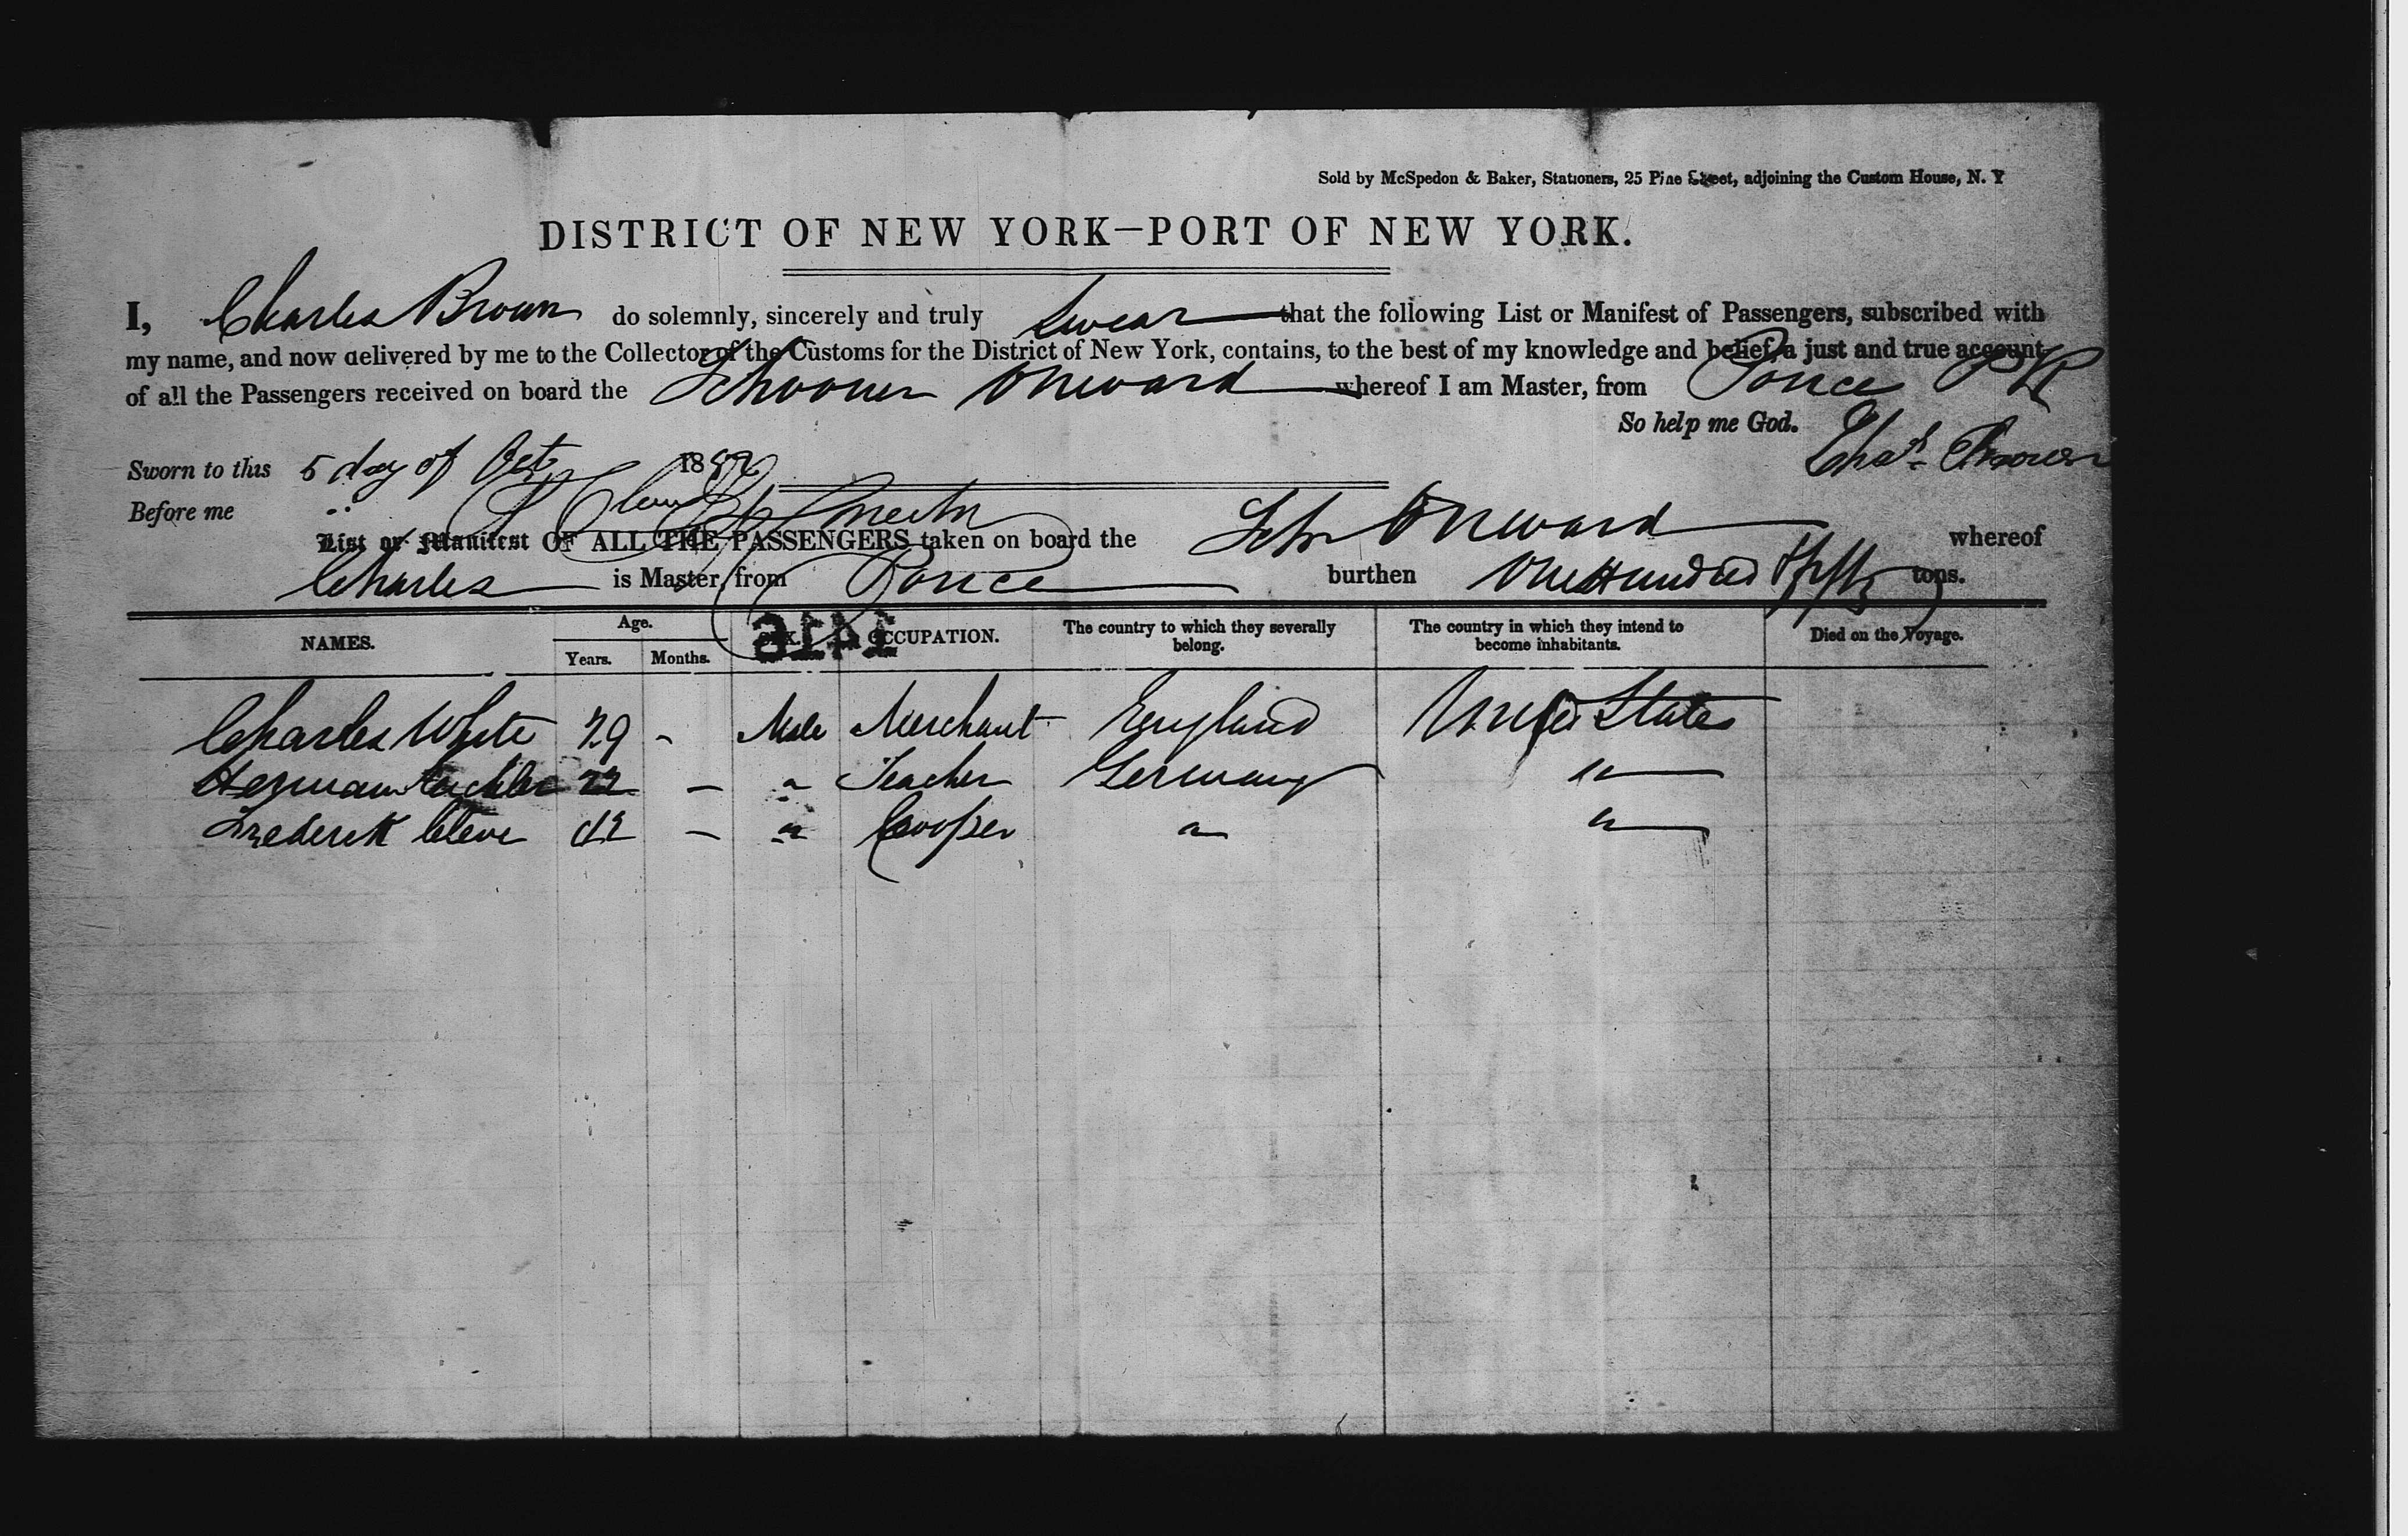 Sold by McSpedon & Baker, Stationers, 25 Pine Street, adjoining the Custom House, N. Y
DISTRICT OF NEW YORK—PORT OF NEW YORK.
I, Charles Brown do solemnly, sincerely and truly swear that the following List or Manifest of Passengers, subscribed with
my name, and now delivered by me to the Collector of the Customs for the District of New York, contains, to the best of my knowledge and belief, a just and true account
of all the Passengers received on board the Schooner Onward whereof I am Master, from Ponce P R
So help me God.
Chas. Brown
Sworn to this 5 day of Oct 18
Before me
List or Manifest OF ALL THE PASSENGERS taken on board the Schr Onward whereof
Charles is Master, from Ponce burthen One Hundred & fifty tons.
NAMES. Age. Years. Months. SEX. OCCUPATION. The country to which they severally belong. The country in which they intend to become inhabitants. Died on the Voyage.
Charles White 29 - Male Merchant England United States
Herman 22 — " Teacher Germany "
Frederick Cleve — " Cooper " "